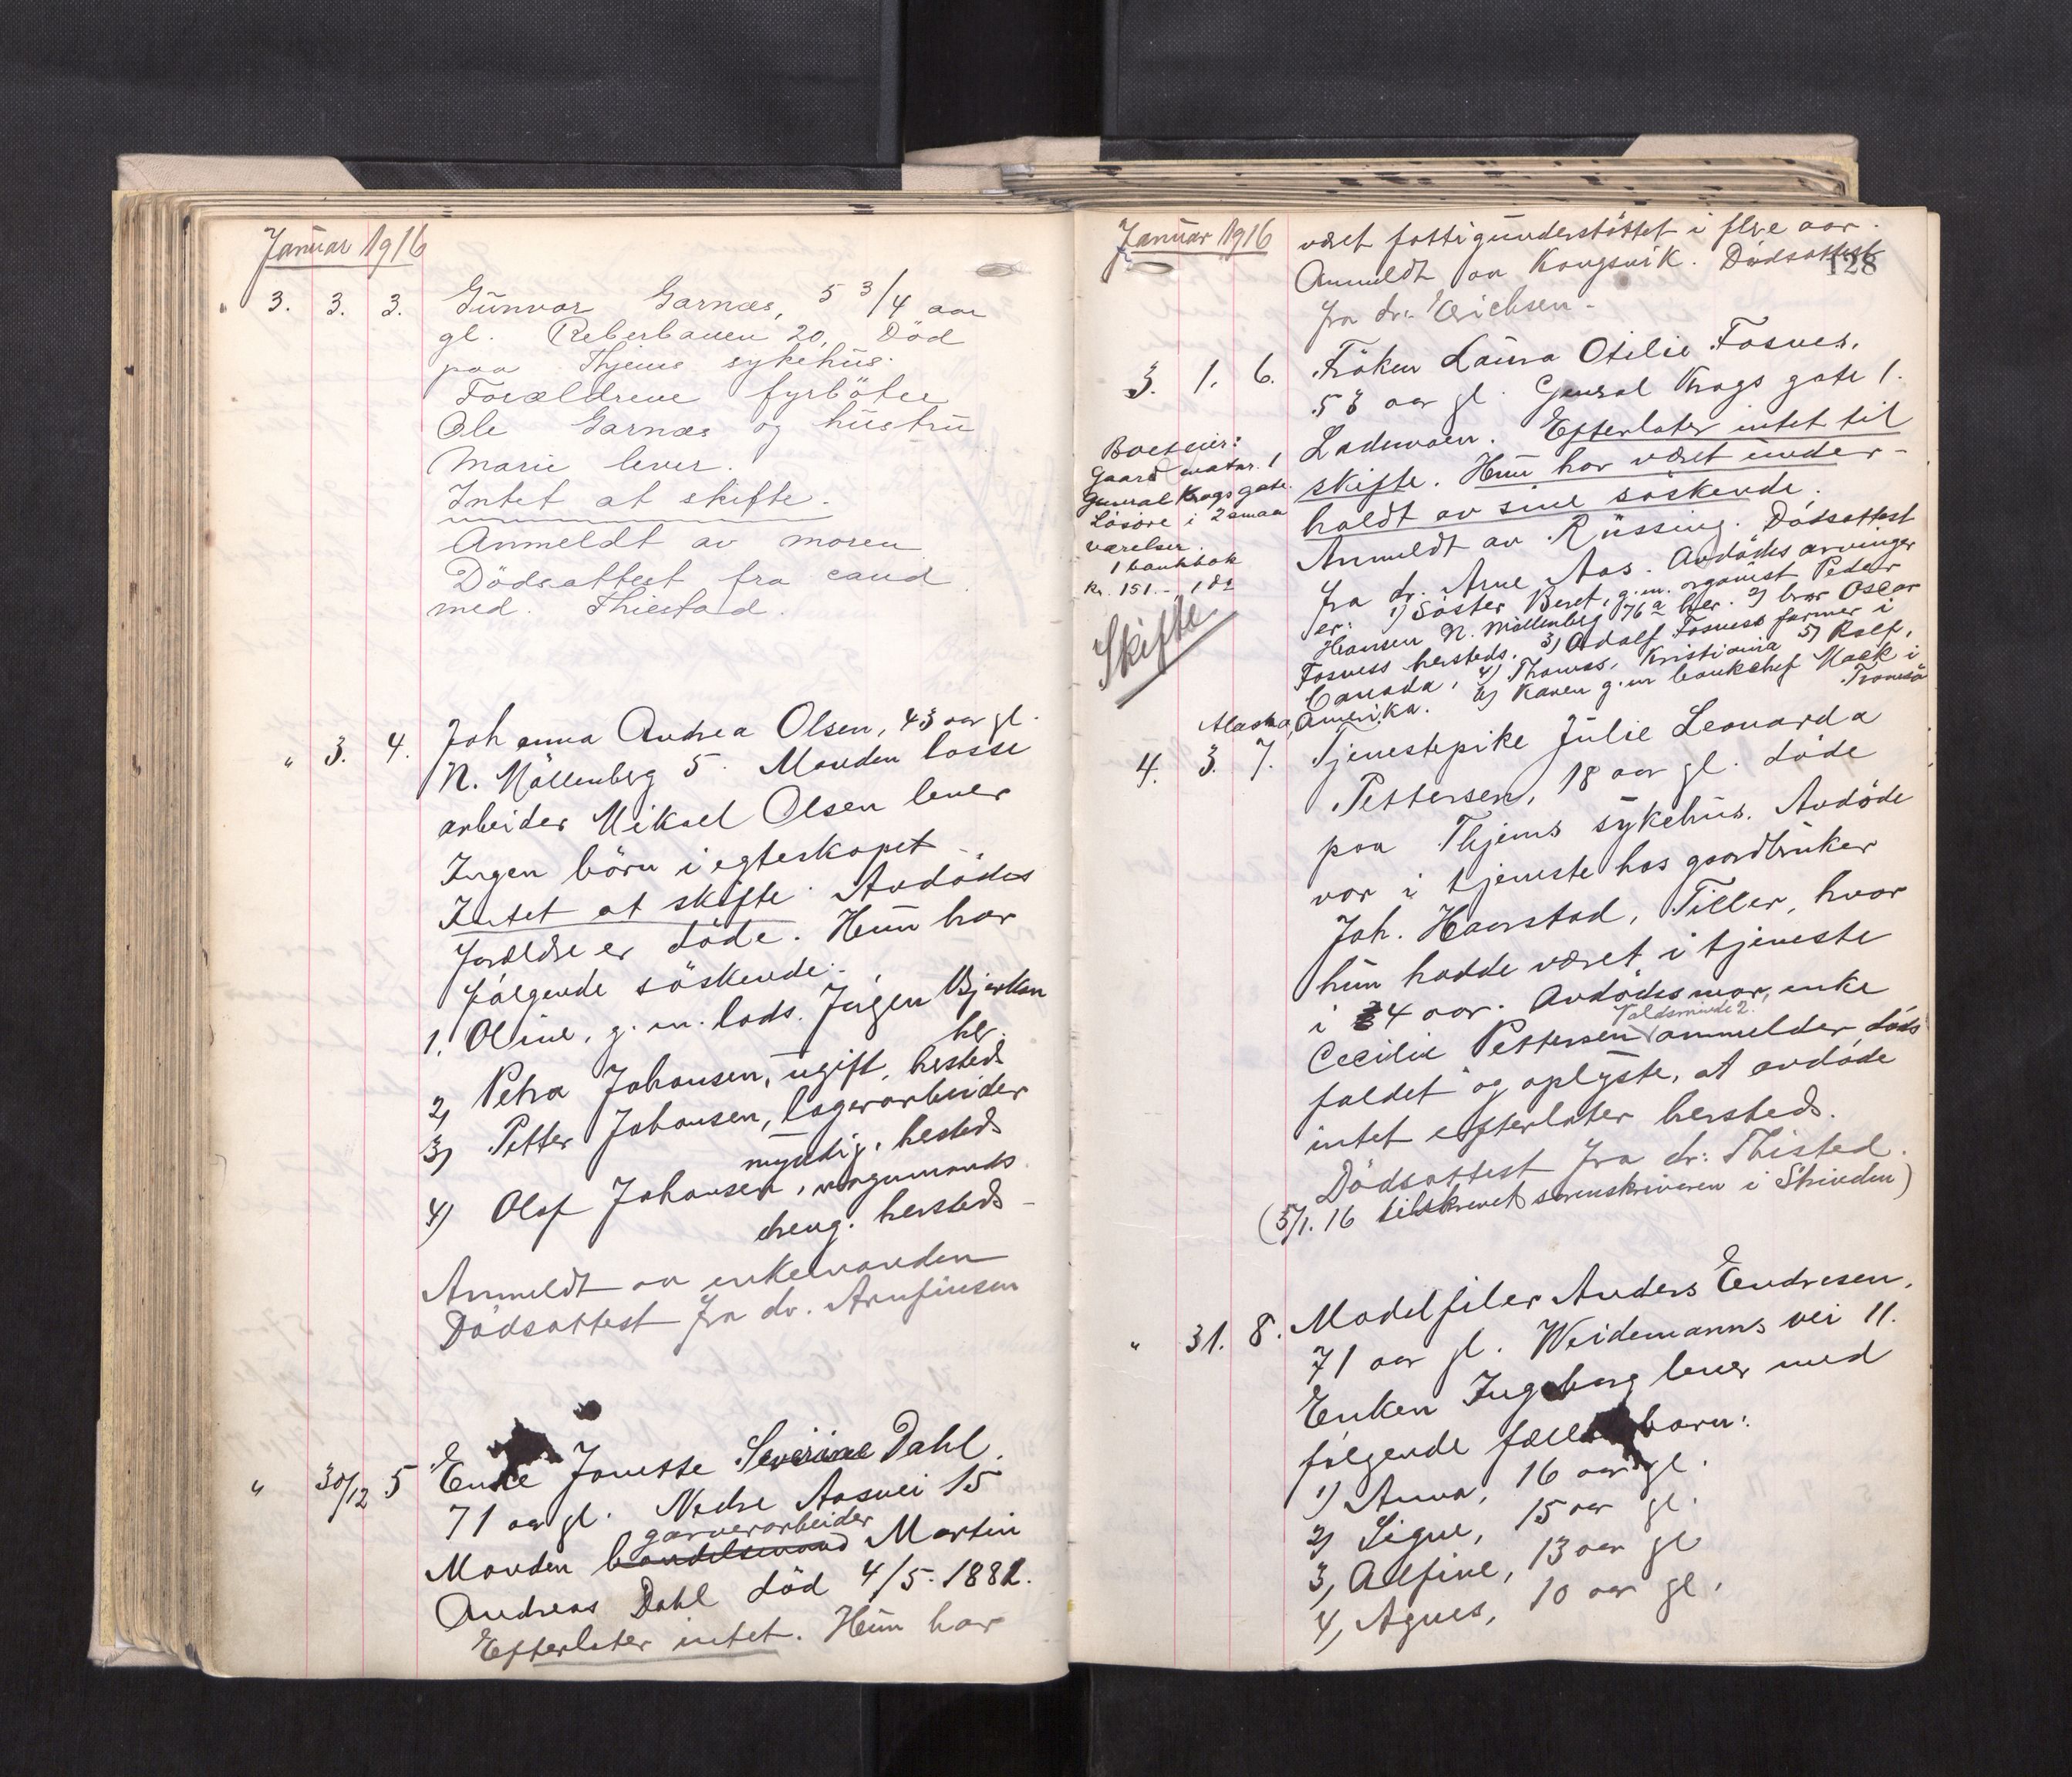 Januar 1916
" 3. 3. 3. Gunvor Garnæs, 5 3/4 aar
gl. Reberbanen 20, Död
paa Thjems sykehus.
Forældrene fyrböter
Ole Garnæs og hustru
Marie lever.
Intet at skifte.
Anmeldt av moren
Dödsattest fra cand
med. Thiestad.
" 3. 4. Johanna Andrea Olsen, 43 aar gl.
N. Möllenberg 5. Manden losse
arbeider Mikael Olsen lever
Ingen börn i egteskapet.
Intet at skifte. Avdödes
forældre er döde. Hun har
fölgende söskende:
1. Oline, g. m. lods. Jörgen Bjerkan
her.
2, Petra Johansen, ugift, hersteds
3) Petter Johansen, lagerarbeider
myndig, hersteds
4) Olaf Johansen, vognmands
dreng. hersteds
Anmeldt av enkemanden
Dödsattest fra dr. Arnfinsen
" 30/12 5 Enke Jonette Severine Dahl.
71 aar gl. Nedre Aasvei 15
garverarbeider
Manden handelsmand Martin
Andreas Dahl död 4/5. 1882.
Efterlater intet. Hun har
Januar 1916
været fattigunderstöttet i flere aar.
Anmeldt av Kongsvik. Dödsattest
128
fra dr. Erichsen.
3. 1. 6. Fröken Laura Otilie Fosnes.
53 aar gl. General Krags gate 1.
Lademoen. Efterlater intet til
skifte. Hun har været under-
holdt av sine söskende.
Anmeldt av Rüssing. Dödsattest
fra dr. Arne Aas. Avdödes arvinger
er: 1) Söster Beret, g. m. organist Peder
Hansen N. Möllenberg 76 a her. 2) bror Oscar
Fosness hersteds. 3) Adolf Fosness farmer i
Canada, 4) Thomas, Kristiania 5) Rolf,
Alaska, Amerika. 6) Karen g. m bankchef Mack i
Tromsö
Boet eier:
Gaard matr. 1
General Krags gate.
Lösöre i 2 smaa
værelser.
1 bankbok
kr. 151.-
Skifte
4. 3. 7. Tjenestepike Julie Leonarda
Pettersen, 18 aar gl. döde
paa Thjems sykehus. Avdöde
var i tjeneste hos gaardbruker
Joh. Haarstad, Tiller, hvor
hun hadde været i tjeneste
i 4 aar. Avdödes mor, enke
Cecilie Pettersen anmelder döds
faldet og oplyste, at avdöde
intet efterlater hersteds.
Dödsattest fra dr: Thisted.
(5/1. 16 tilskrevet sorenskriveren i Strinden)
" 31. 8. Modelfiler Anders Endresen,
71 aar gl. Weidemanns vei 11.
Enken Ingeborg lever med
fölgende fælles barn:
1) Anna, 16 aar gl.
2) Signe, 15 aar gl.
3, Alfine, 13 aar gl
4, Agnes, 10 aar gl.